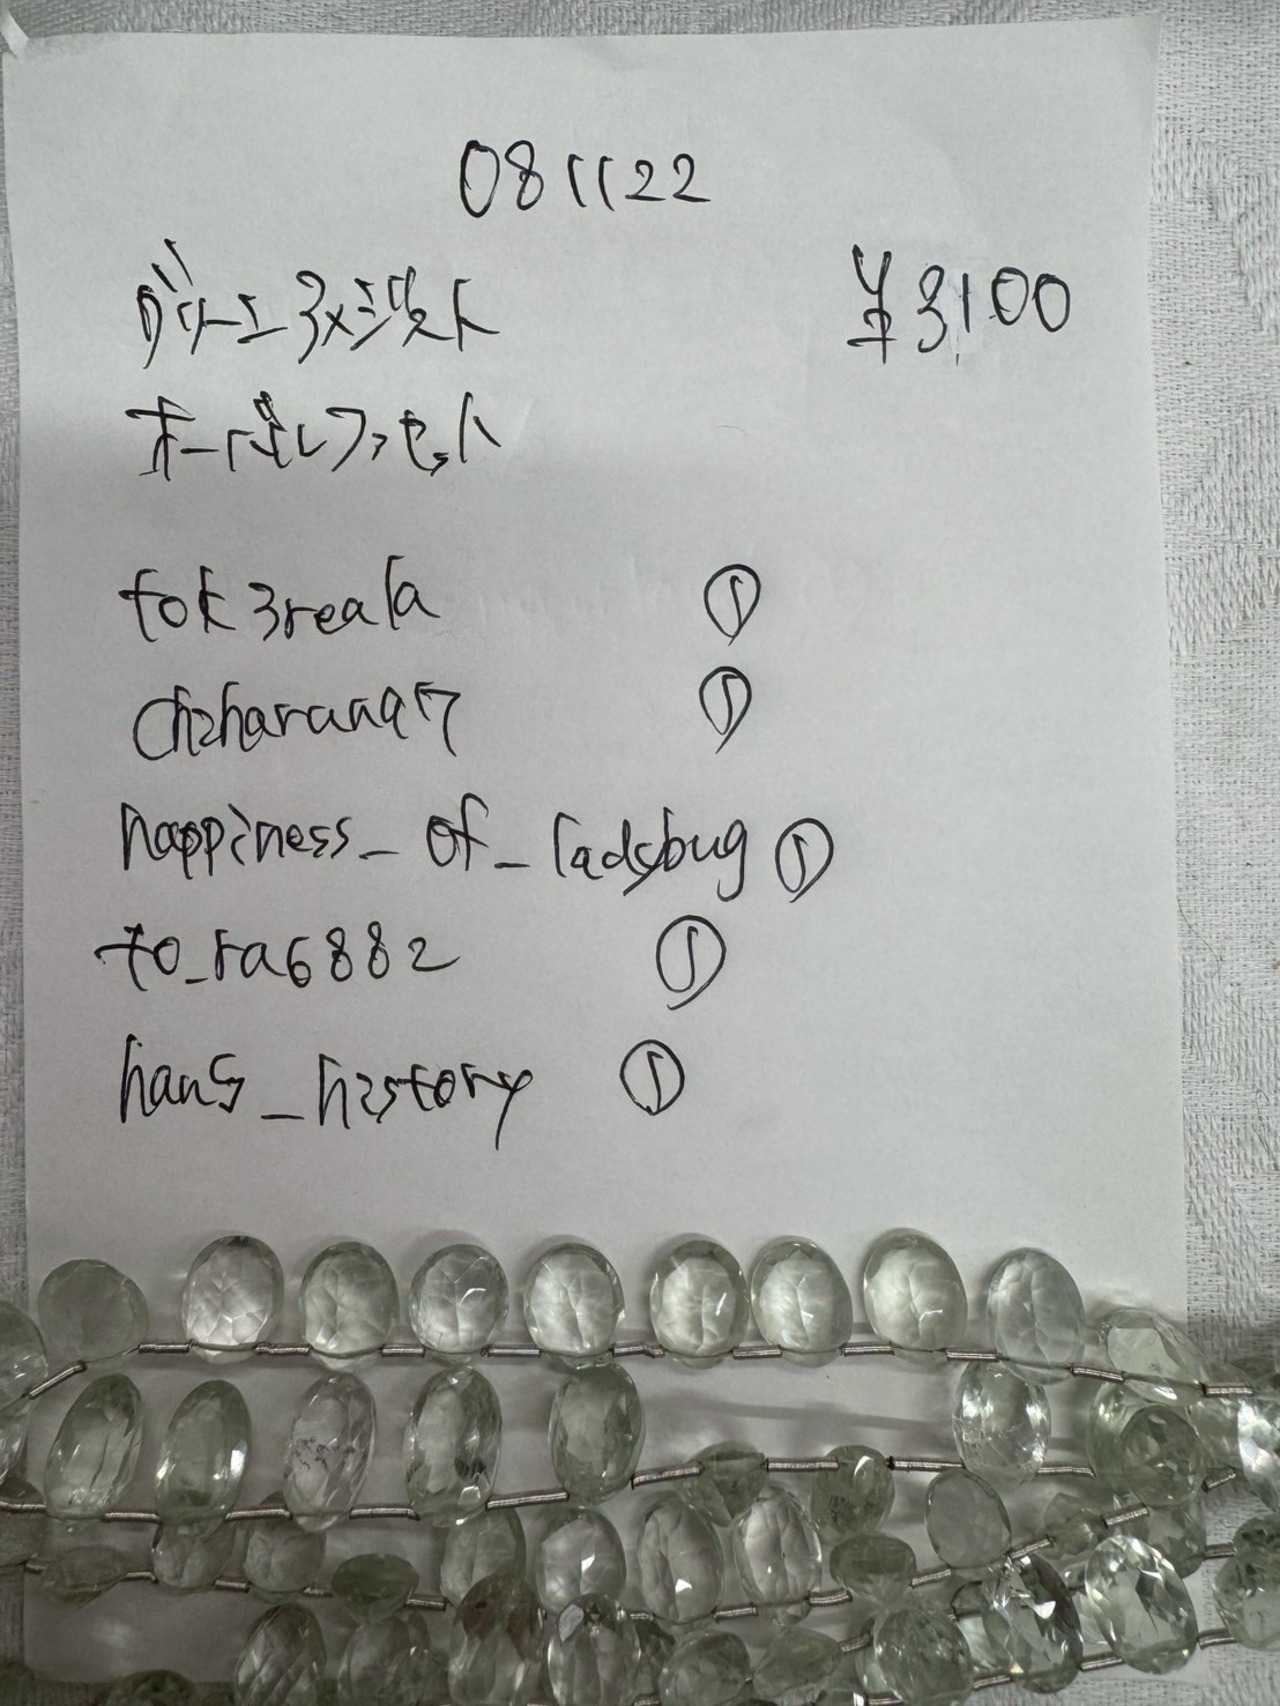 081122
グリーンアメジスト ¥3100
オーバルファセット
tok3reala
chiharuna97
happiness_of_ladybug ①
to_ra6882 ①
hans_history ①